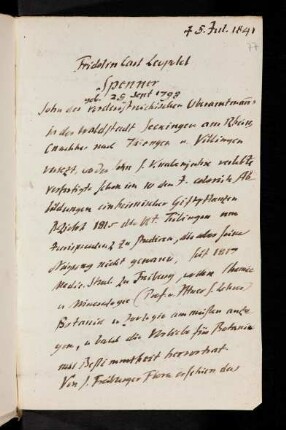 † 5. Jul. 1841
77
Fridolin Carl Leopold
Spenner
geb. 25 Sept 1798
Sohn des vorderöstreichischen Oberamtmann
in der Waldstadt Seckingen am Rhein,
(nachher nach Triengen u. Villingen
versezt, wo der Sohn s. Knabenjahre verlebte
verfertigte schon im 10 den J. colorirte Ab-
bildungen einheimischer Giftpflanzen
bezieht 1815 die Ut. Tübingen um
Jurisprudenz zu studiren, die aber seine
Neigung nicht gewann, seit 1817
Medic. Stud. zu Freiburg, wo ihm Chemie
u Mineralogie (Prof.
Botanik u Zoologie am meisten anzo-
gen, u bald die Vorliebe für Botanik
mit Bestimmtheit hervortrat
Von s. Freiburger Flora erschien das